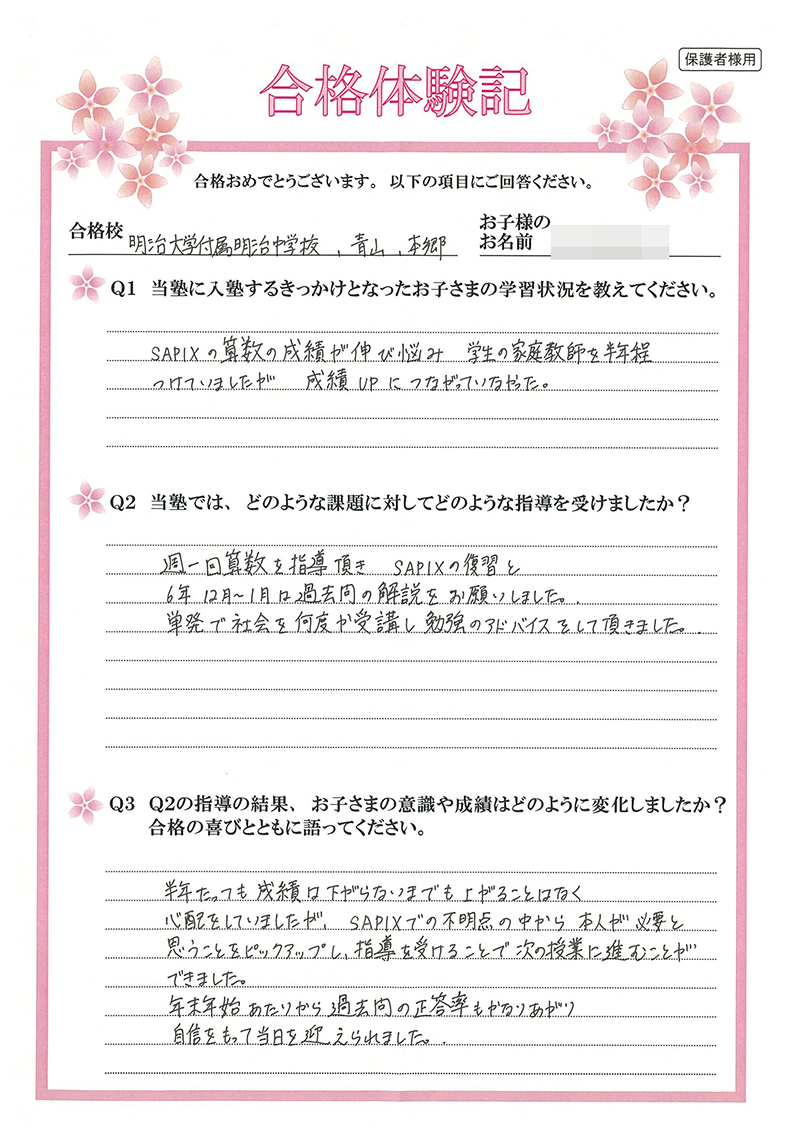 保護者様用
合格体験記
合格おめでとうございます。以下の項目にご回答ください。
合格校 明治大学付属明治中学校、青山、本郷
お子様の
お名前
Q1 当塾に入塾するきっかけとなったお子さまの学習状況を教えてください。
SAPIXの算数の成績が伸び悩み 学生の家庭教師を半年程
つけていましたが 成績UPにつながっていなかった。
Q2 当塾では、どのような課題に対してどのような指導を受けましたか？
週一回算数を指導頂き SAPIXの復習と
6年12月〜1月は過去問の解説をお願いしました。
単発で社会を何度か受講し勉強のアドバイスをして頂きました。
Q3 Q2の指導の結果、お子さまの意識や成績はどのように変化しましたか？
合格の喜びとともに語ってください。
半年たっても成績は下がらないまでも上がることはなく
心配をしていましたが、SAPIXでの不明点の中から本人が必要と
思うことをピックアップし、指導を受けることで次の授業に進むことが
できました。
年末年始あたりから過去問の正答率もかなりあがり
自信をもって当日を迎えられました。